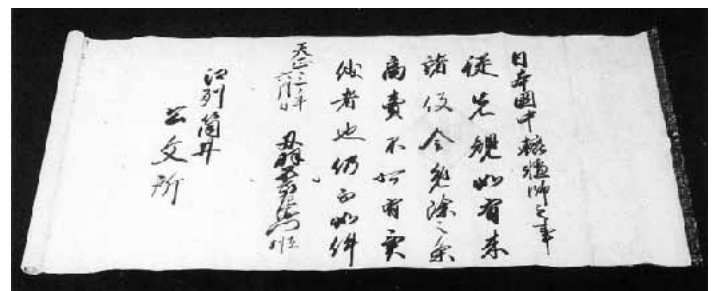 日本國中轆轤師之事
従先規如有来
諸役令免除之条
商賣不可有異
儀者也仍而如件
天正十一年
六月日 丹羽五郎左衛門
江州筒井
公文所